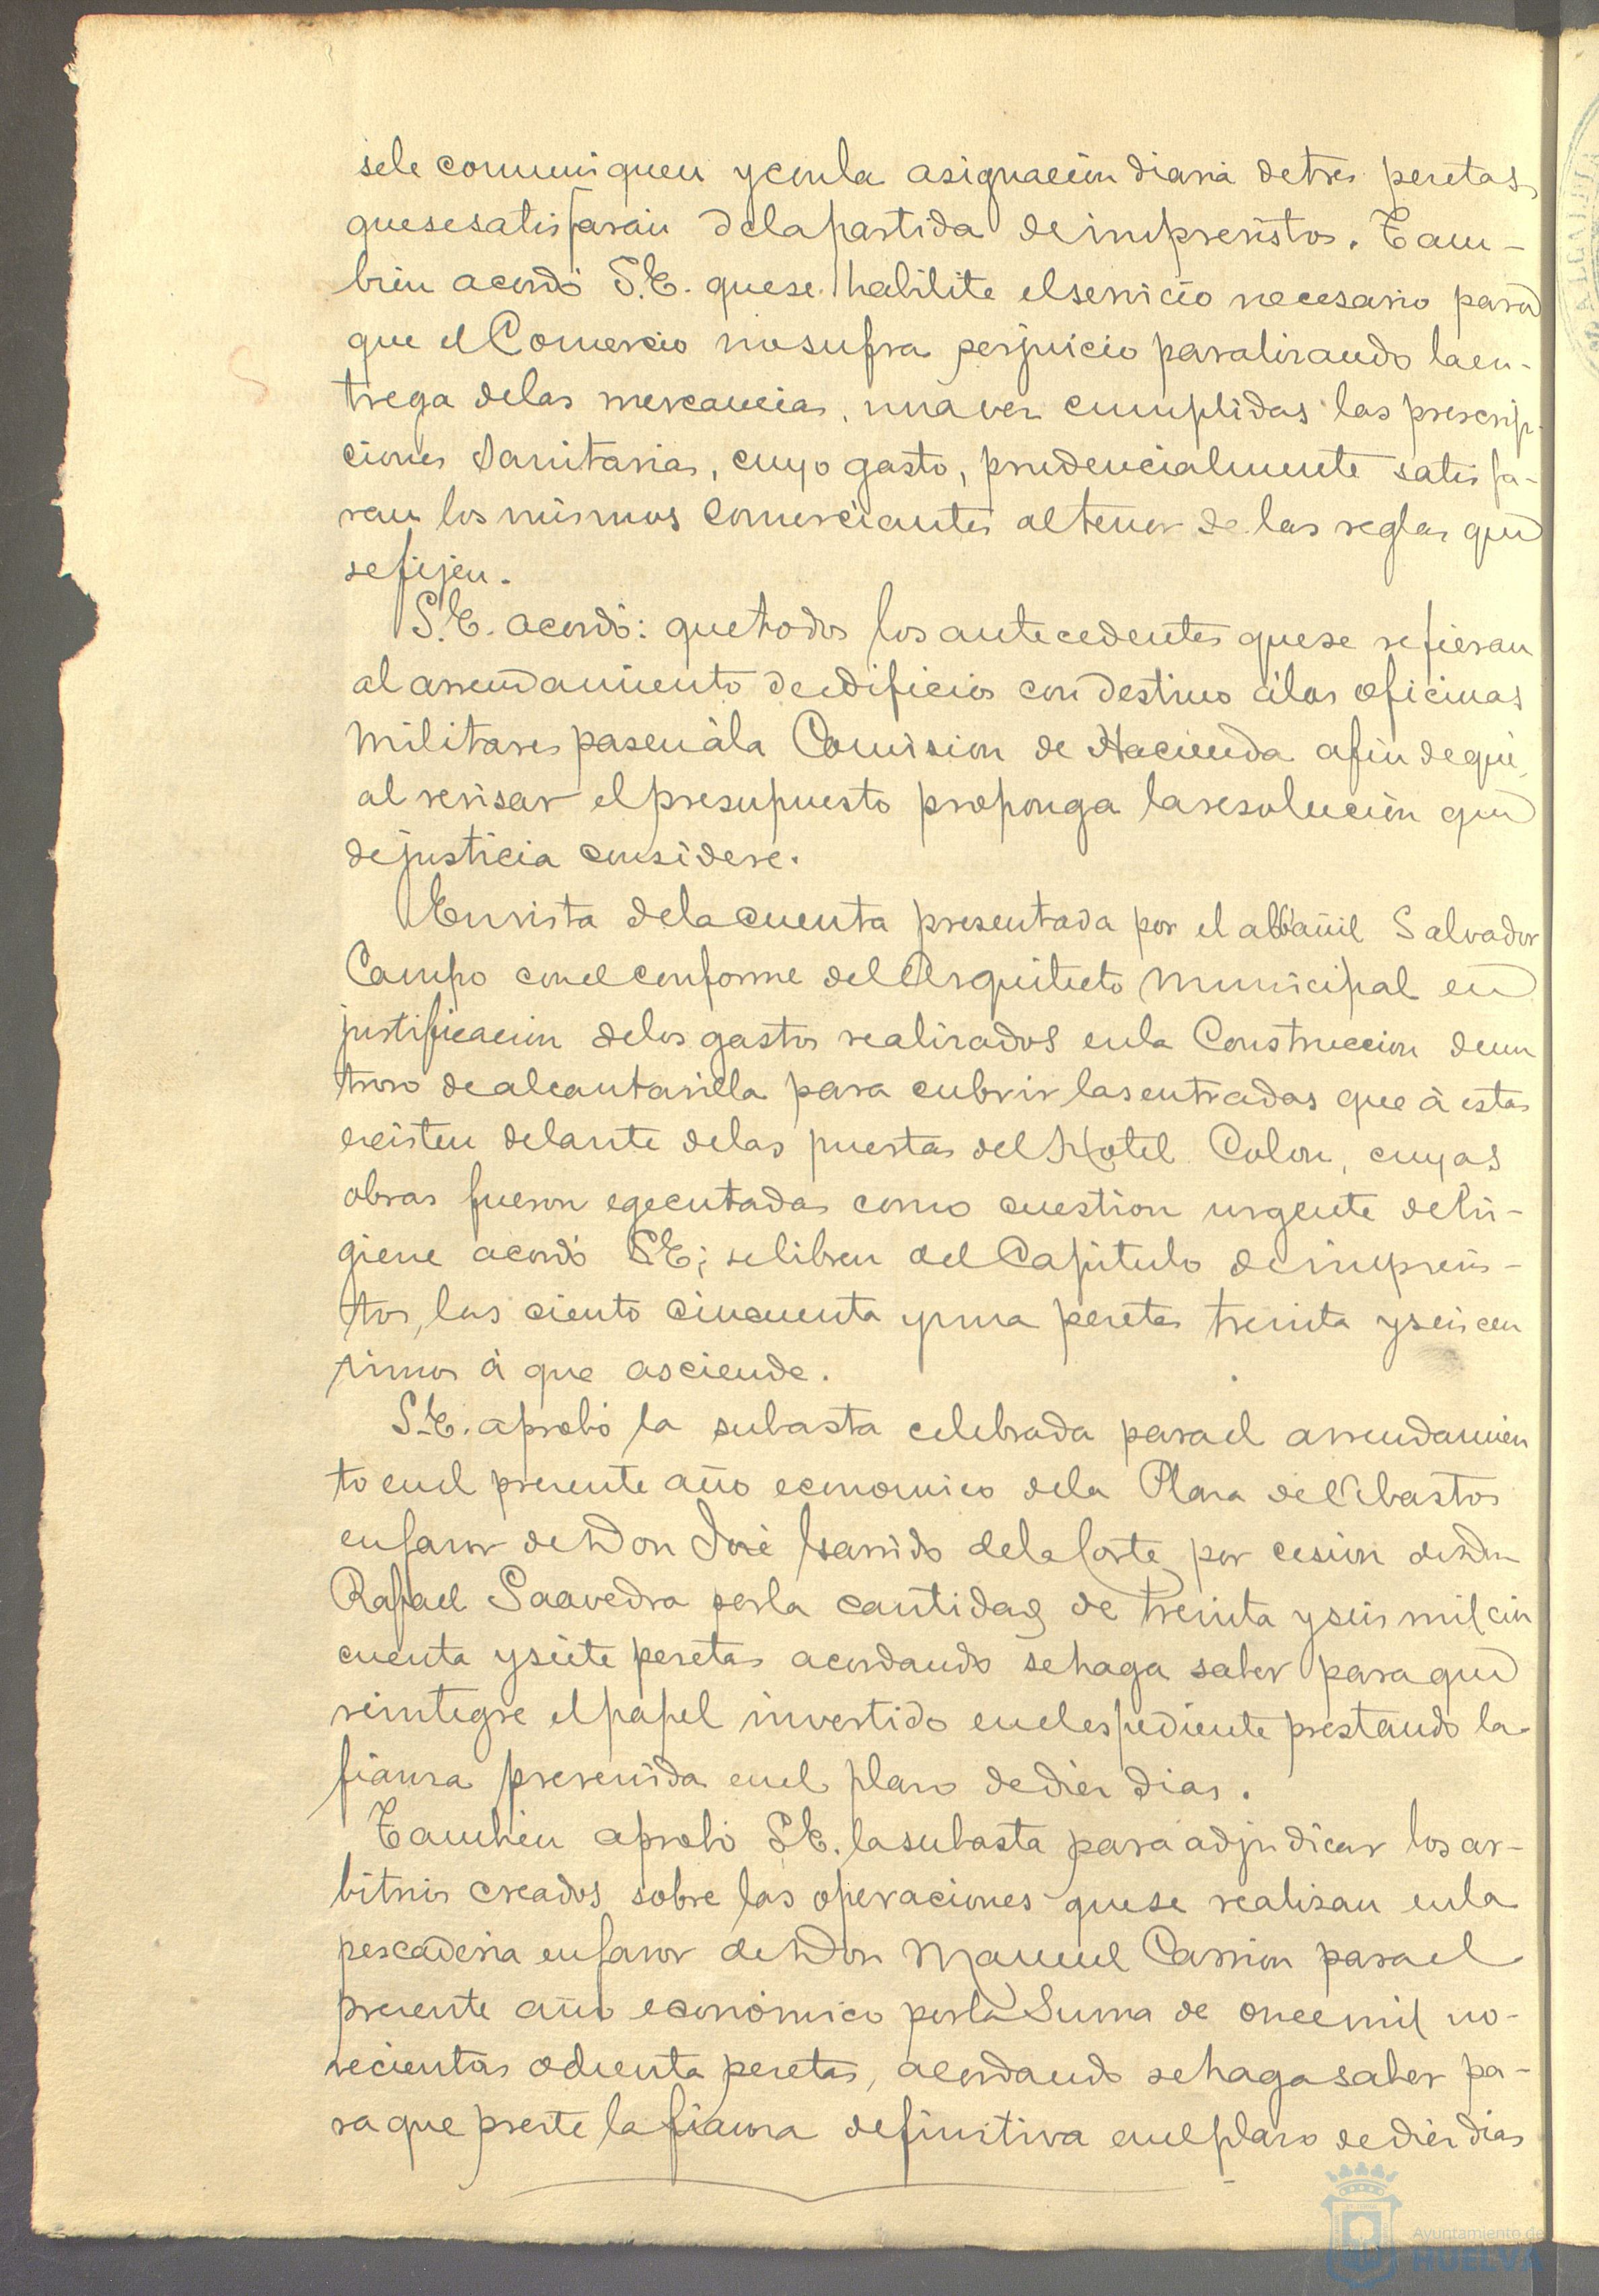 sele comuniquen y conla asignacion diaria de tres pesetas
quesesatisfarán dela partida de imprevistos. Tam-
bien acordó S.E. quese habilite elservicio necesario para
que el Comercio nosufra perjuicio paralizando laen-
trega delas mercancias, unavez cumplidas las prescrip-
ciones Sanitarias, cuyo gasto, prudencialmente satisfa-
ran los mismos comerciantes altenor de las reglas que
sefijen.
S.E. acordó: quetodos los antecedentes quese refieran
al arrendamiento de edificios con destino álas oficinas
Militares pasen ála Comision de Hacienda afin de que
al revisar el presupuesto proponga laresolucion que
dejusticia considere.
Envista dela cuenta presentada por el albañil Salvador
Campo conel conforme del Arquitecto Municipal en
justificacion delos gastos realizados enla Construccion deun
trozo de alcantarilla para cubrir las entradas que á estas
existen delante delas puertas del Hotel Colon, cuyas
obras fueron egecutadas como cuestion urgente dehi-
giene acordó SE; selibren del Capitulo de imprevis-
tos, las ciento cincuenta y una pesetas treinta yseis cen
timos á que asciende.
S.E. aprobó la subasta celebrada parael arrendamien
to enel presente año economico dela Plaza de Abastos
enfavor de Don José Garrido dela Corte por cesion de Don
Rafael Saavedra porla cantidad de treinta y seis mil cin
cuenta ysiete pesetas acordando sehaga saber paraque
reintegre el papel invertido enelespediente prestando la
fianza prevenida enel plazo dediez dias.
Tambien aprobó SE. lasubasta para adjudicar los ar-
bitrios creados sobre las operaciones quese realizan enla
pescaderia enfavor de Don Manuel Carrion parael
presente año económico porla Suma de oncemil no-
vecientas ochenta pesetas, acordando sehagasaber pa-
raque preste la fianza definitiva enelplazo dediez dias
Ayuntamiento de
HUELVA